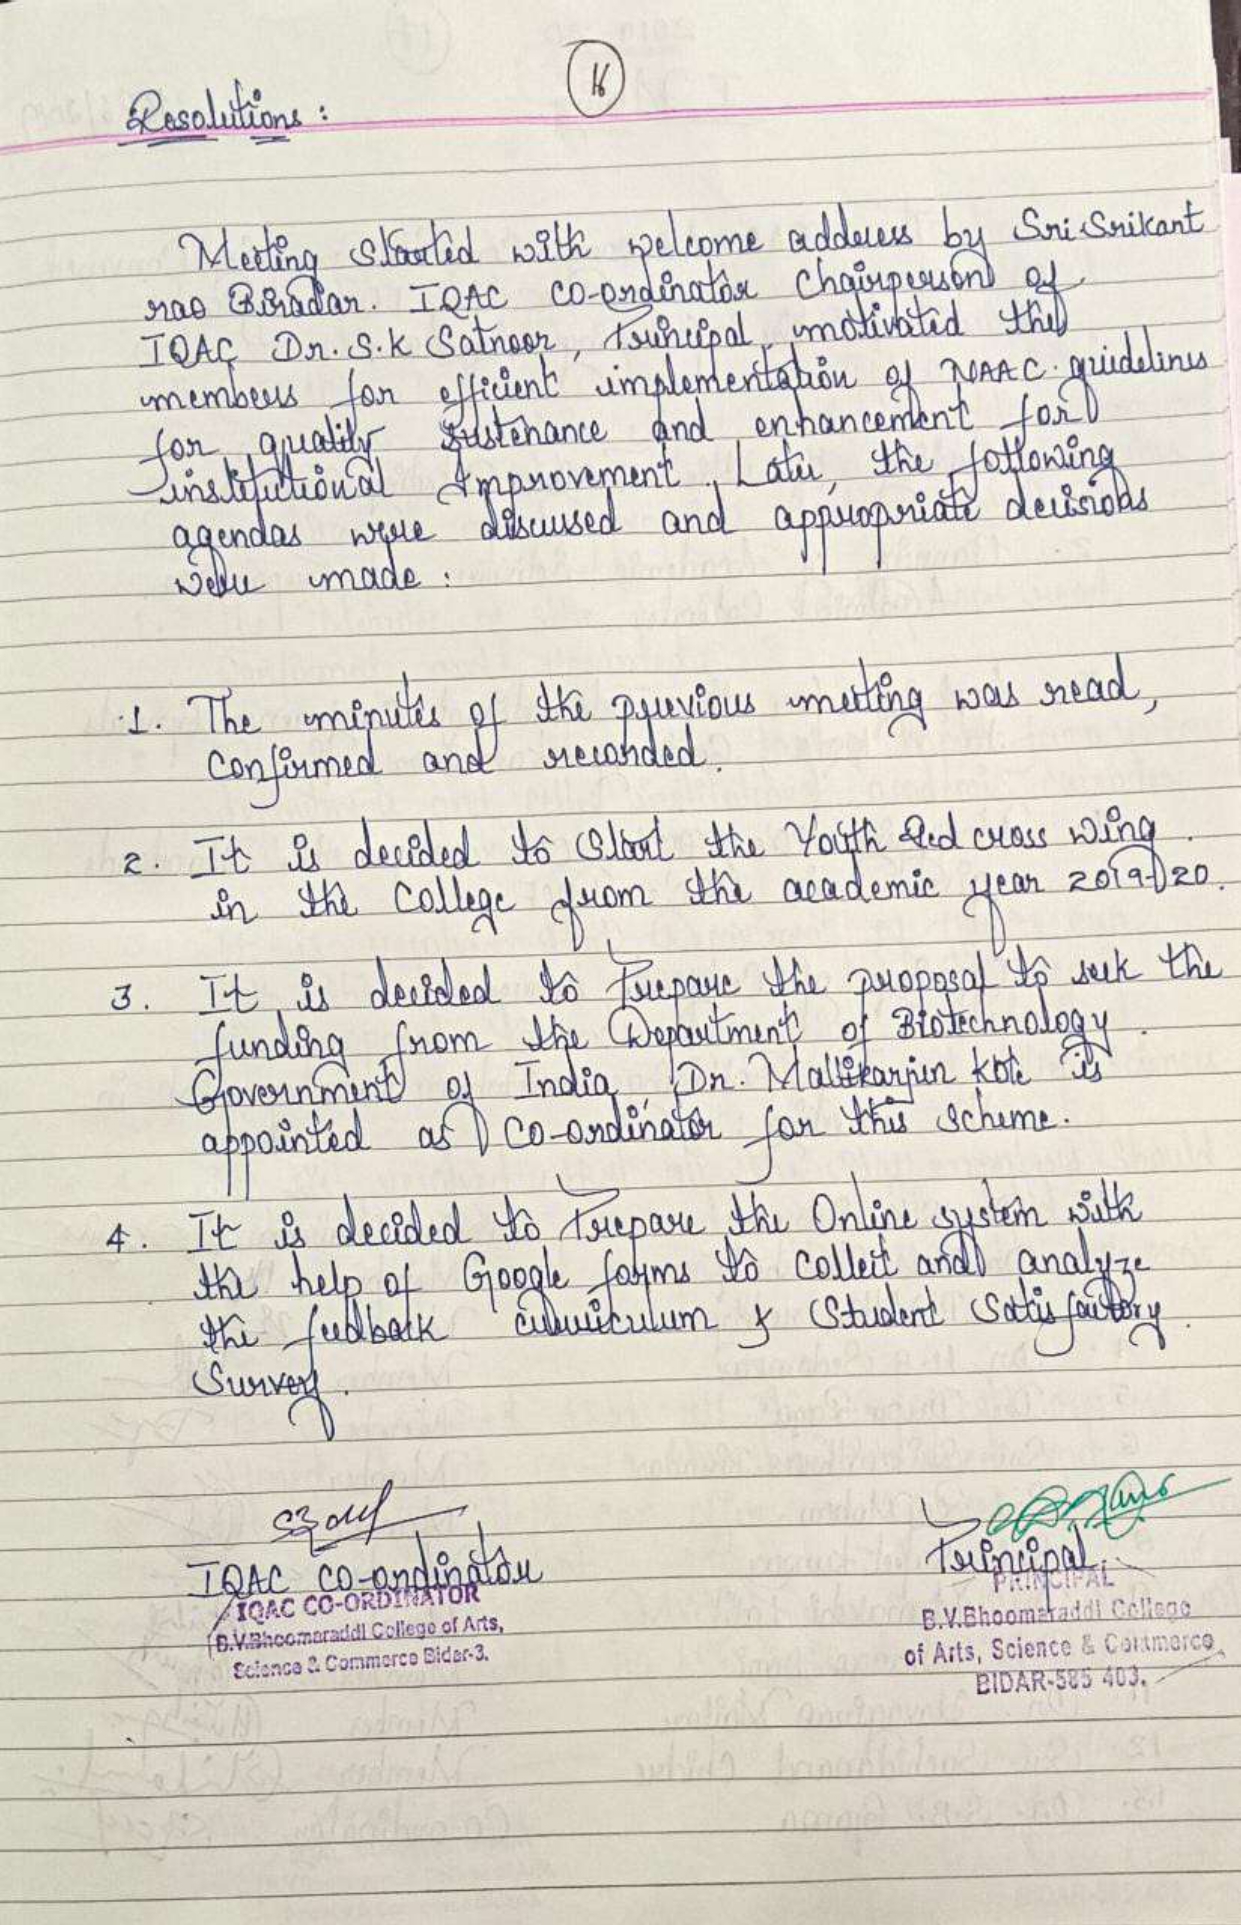 16
Resolutions :
Meeting started with welcome address by Sri Srikant
rao Biradar. IQAC co-ordinator Chairperson of
IQAC Dr. S.K Satnoor, Principal, motivated the
members for efficient implementation of NAAC guidelines
for quality sustenance and enhancement for
institutional Improvement. Later, the following
agendas were discussed and appropriate decisions
were made :
1. The minutes of the previous meeting was read,
Confirmed and recorded.
2. It is decided to Start the Youth Red cross wing
in the College from the academic year 2019-20.
3. It is decided to Prepare the proposal to seek the
funding from the Department of Biotechnology
Government of India, Dr. Mallikarjun Kote is
appointed as Co-ordinator for this scheme.
4. It is decided to Prepare the Online system with
the help of Google forms to collect and analyze
the feedback curriculum & Student Satisfactory
Survey.
IQAC CO-ordinator
IQAC CO-ORDINATOR
B.V.Bhoomaraddi College of Arts,
Science & Commerce Bidar-3.
Principal
PRINCIPAL
B.V.Bhoomaraddi College
of Arts, Science & Commerce
BIDAR-585 403.